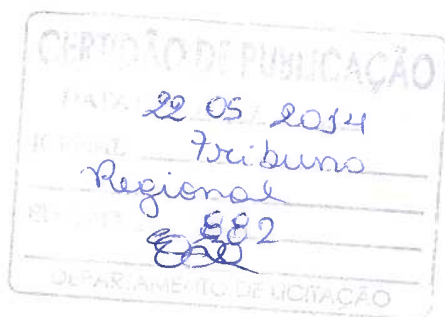 CERTIDÃO DE PUBLICAÇÃO
DATA 22 05 2014
JORNAL Tribuna
Regional
882
DEPARTAMENTO DE LICITAÇÃO